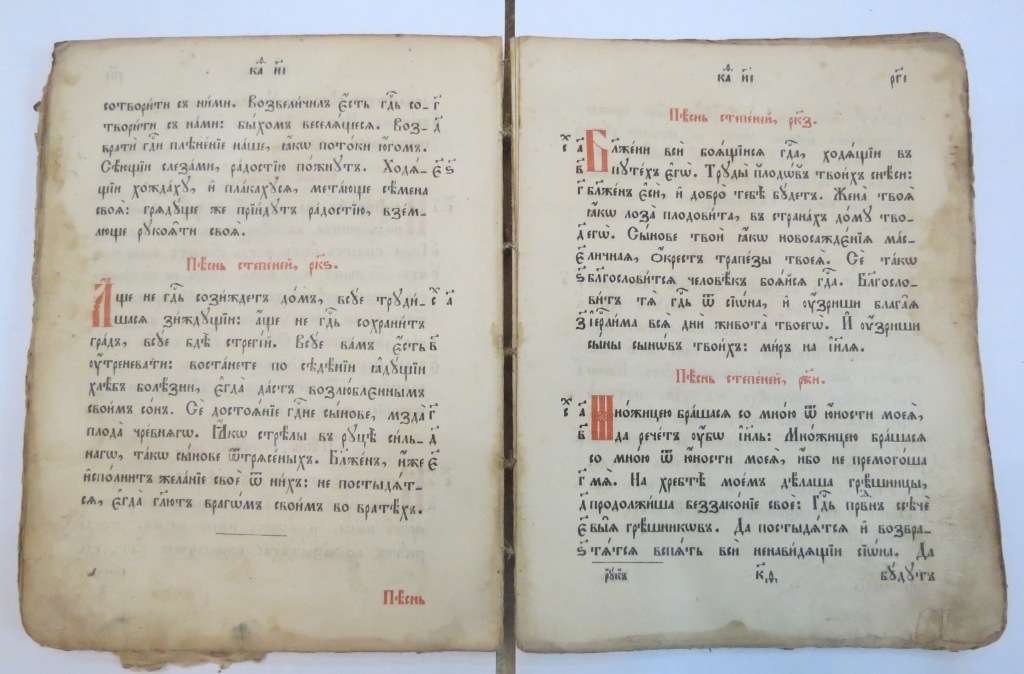 каѳ҃ и҃і
сотвори́ти съ ни́ми. Возвели́чилъ є҆́сть гдⷭ҇ь со- г҃
твори́ти съ на́ми: бы́хомъ веселѧ́щесѧ. Воз- д҃
вратѝ гдⷭ҇и плѣне́нїе на́ше, ꙗ҆́кѡ пото́ки ю҆́гомъ.
Сѣ́ющїи слеза́ми, ра́достїю по́жнутъ. Ходѧ́- є҃ ѕ҃
щїи хожда́ху, и҆ пла́кахусѧ, мета́юще сѣ́мена
своѧ̑: грѧду́ще же прїи́дутъ ра́достїю, взе́м-
люще рукоѧ́ти своѧ̑.
Пѣ́снь степе́ней, рк҃ѕ.
А҆́ще не гдⷭ҇ь сози́ждетъ до́мъ, всу́е труди́- с҃ а҃
шасѧ зи́ждущїи: а҆́ще не гдⷭ҇ь сохрани́тъ
гра́дъ, всу́е бдѣ̀ стрегі́й. Всу́е ва́мъ є҆́сть в҃
оу҆́треневати: воста́нете по сѣдѣ́нїи ꙗ҆ду́щїи
хлѣ́бъ болѣ́зни, є҆гда̀ да́стъ возлю́бленнымъ
свои̑мъ со́нъ. Сѐ достоѧ́нїе гдⷭ҇не сы́нове, мзда̀ г҃
плода̀ чре́внѧгѡ. Ꙗ҆́кѡ стрѣ́лы въ руцѣ̀ си́ль- д҃
нагѡ, та́кѡ сы́нове ѿтрѧсе́ныхъ. Бл҃же́нъ, и҆́же є҃
и҆спо́лнитъ жела́нїе своѐ ѿ ни́хъ: не постыдѧ́т-
сѧ, є҆гда̀ гл҃ютъ врагѡ́мъ свои̑мъ во вратѣ́хъ.
Пѣ́снь
каѳ҃ и҃і
рг҃і
Пѣ́снь степе́ней, рк҃з.
с҃ а҃ Бл҃же́ни всѝ боѧ́щїисѧ гдⷭ҇а, ходѧ́щїи въ
в҃ путе́хъ є҆гѡ̀. Труды̀ плодѡ́въ твои́хъ снѣ́си:
г҃ бл҃же́нъ є҆сѝ, и҆ добро̀ тебѣ̀ бу́детъ. Жена̀ твоѧ̀
ꙗ҆́кѡ лоза̀ плодови́та, въ страна́хъ до́му тво-
д҃ егѡ̀. Сы́нове твоѝ ꙗ҆́кѡ новосажде́нїѧ ма́с-
є҃ личнаѧ, ѡ҆́крестъ трапе́зы твоеѧ̀. Сѐ та́кѡ
ѕ҃ благослови́тсѧ человѣ́къ боѧ́йсѧ гдⷭ҇а. Бл҃госло-
ви́тъ тѧ̀ гдⷭ҇ь ѿ сїѡ́на, и҆ оу҆́зриши блага̑ѧ
з҃ і҆ерⷭ҇ли́ма всѧ̑ дни̑ живота̀ твоегѡ̀. И҆ оу҆́зриши
сы́ны сынѡ́въ твои́хъ: ми́ръ на і҆и҃лѧ.
Пѣ́снь степе́ней, рк҃и.
с҃ а҃ Мно́жицею бра́шасѧ со мно́ю ѿ ю҆́ности моеѧ̀,
в҃ да рече́тъ оу҆́бѡ і҆и҃ль: Мно́жицею бра́шасѧ
со мно́ю ѿ ю҆́ности моеѧ̀, и҆́бо не премого́ша
г҃ мѧ̀. На хребтѣ̀ мое́мъ дѣ́лаша грѣ́шницы,
д҃ продолжи́ша беззако́нїе своѐ: Гдⷭ҇ь првⷣнъ ссѣчѐ
є҃ вы́ѧ грѣ́шникѡвъ. Да постыдѧ́тсѧ и҆ возвра-
ѕ҃ тѧ́тсѧ вспѧ́ть всѝ ненави́дѧщїи сїѡ́на. Да
бу́дутъ